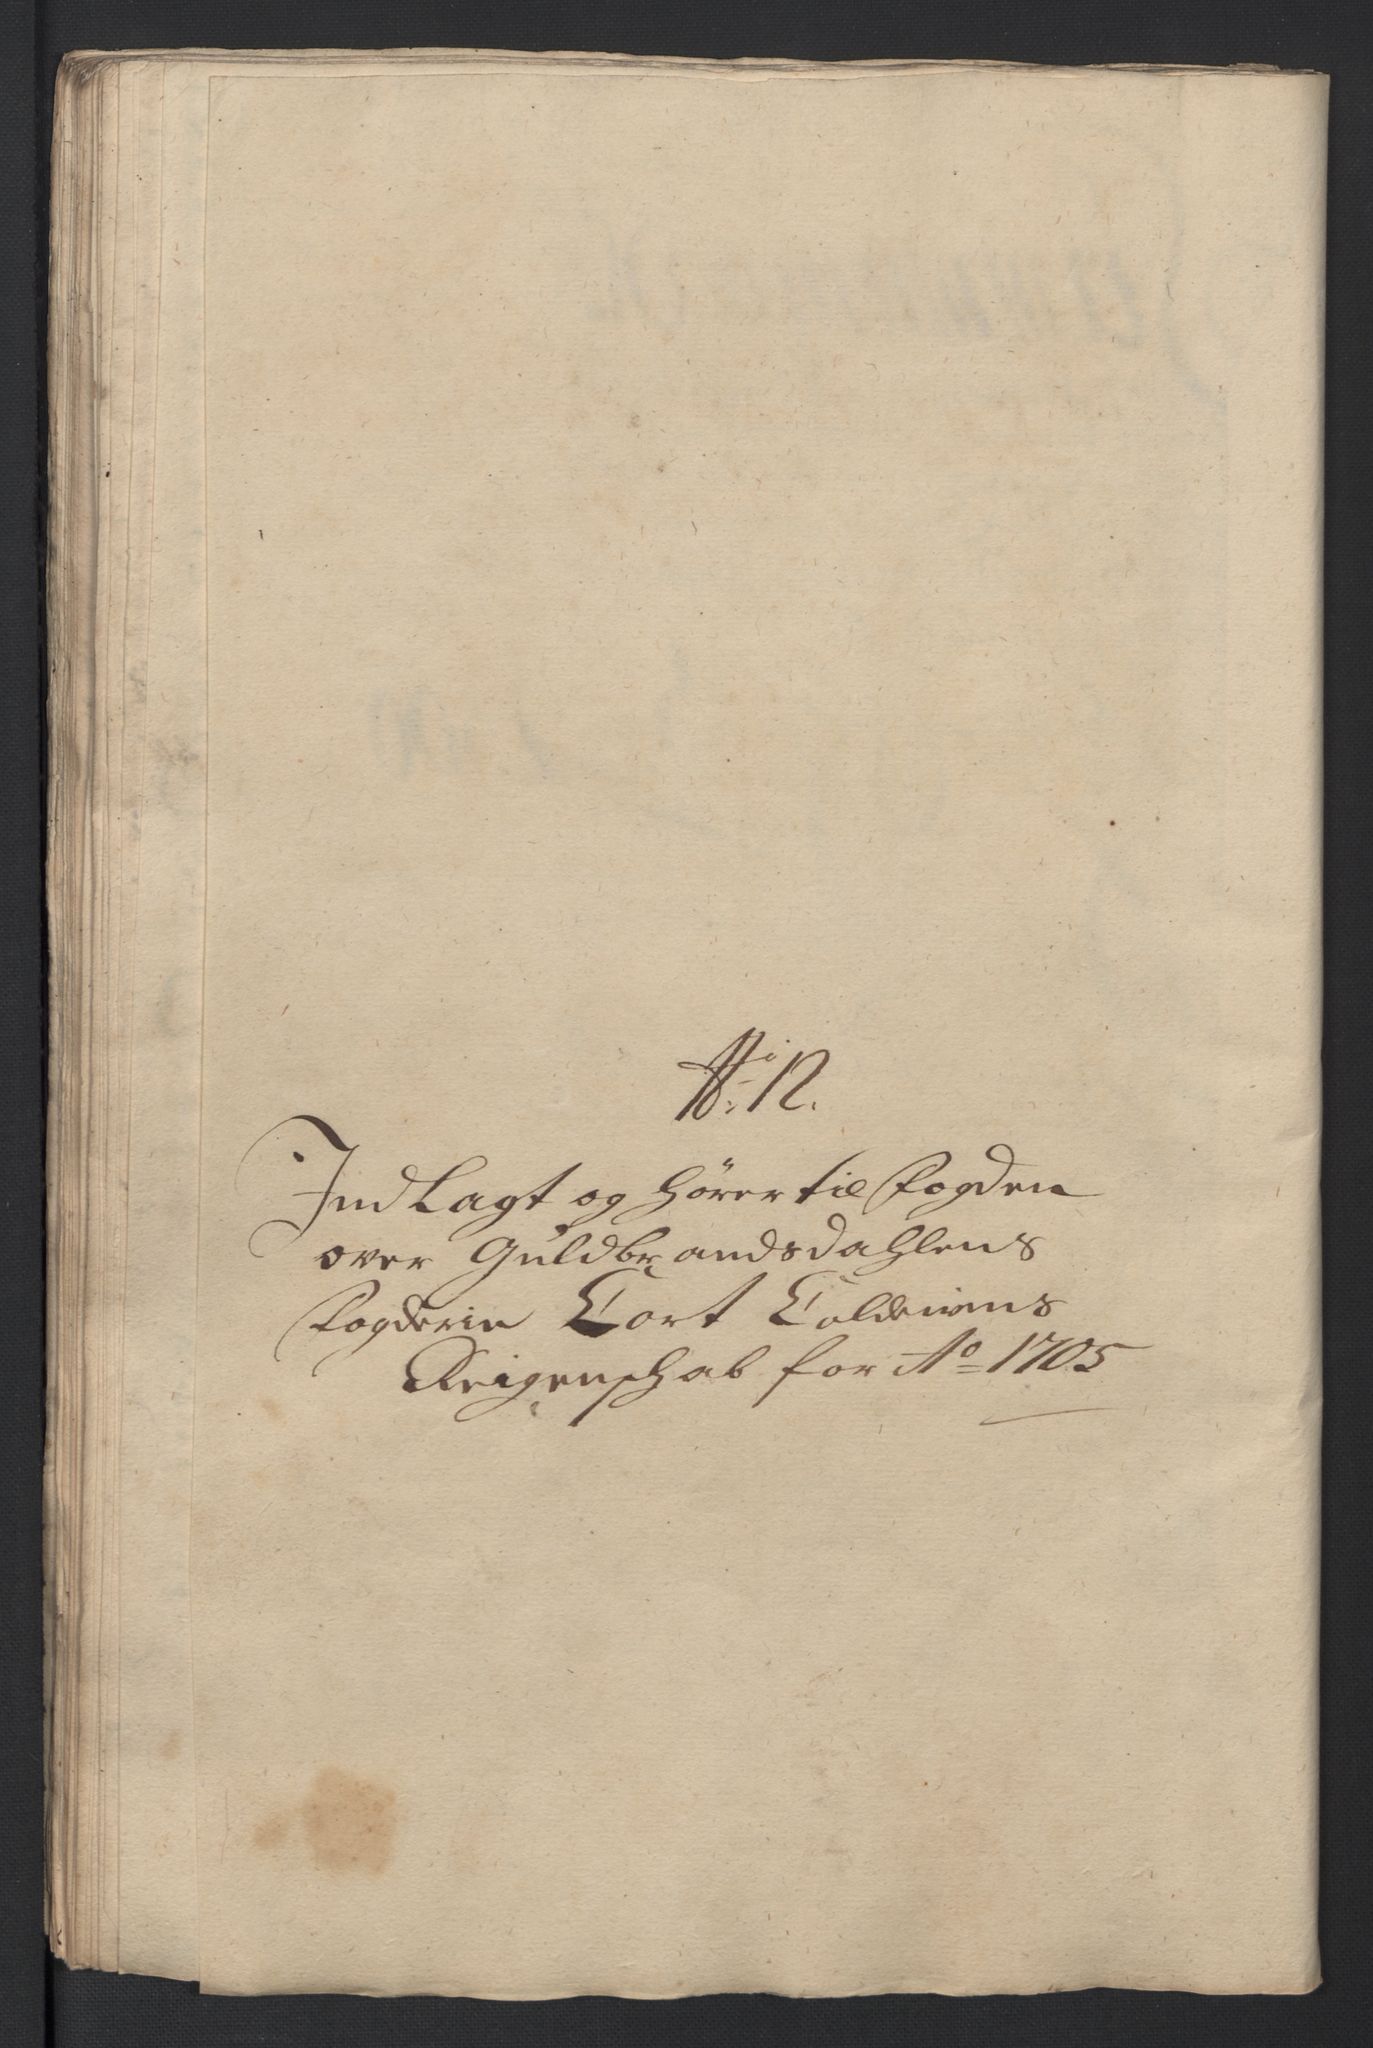 N: 12.
Ind Lagt og hörer til Fogden
over Guldbrandsdahlens
Fogderie Cort Coldevens
Reigenschab for Ao 1705